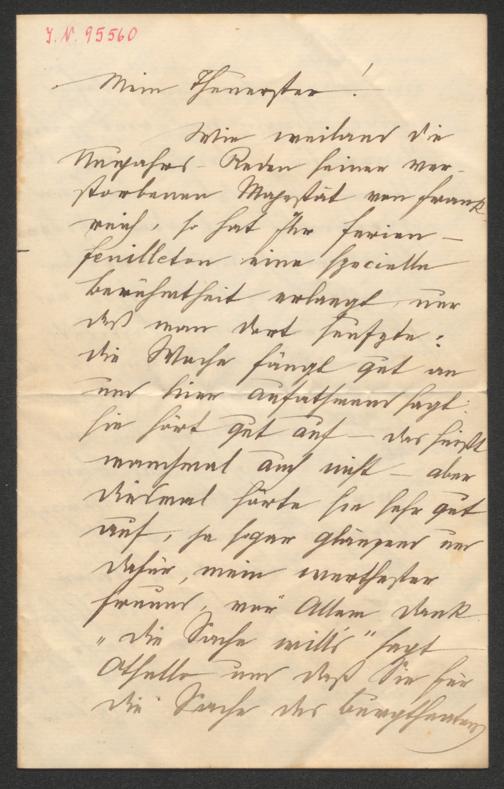 J. N. 95560
Mein Theuerster!
Wie weiland die
Neujahrs-Reden seiner ver-
storbenen Majestät von Frank-
reich, so hat Ihr Ferien-
feuilleton eine specielle
Berühmtheit erlangt, nur
daß man dort seufzte:
die Woche fängt gut an
und hier aufathmend sagt:
sie hört gut auf – das heißt
manchmal auch nicht – aber
diesmal hörte sie sehr gut
auf, ja sogar glänzend und
dafür, mein werthester
Freund, vor Allem Dank
"die Sache will's" sagt
Othello und daß Sie für
die Sache des Burgtheaters